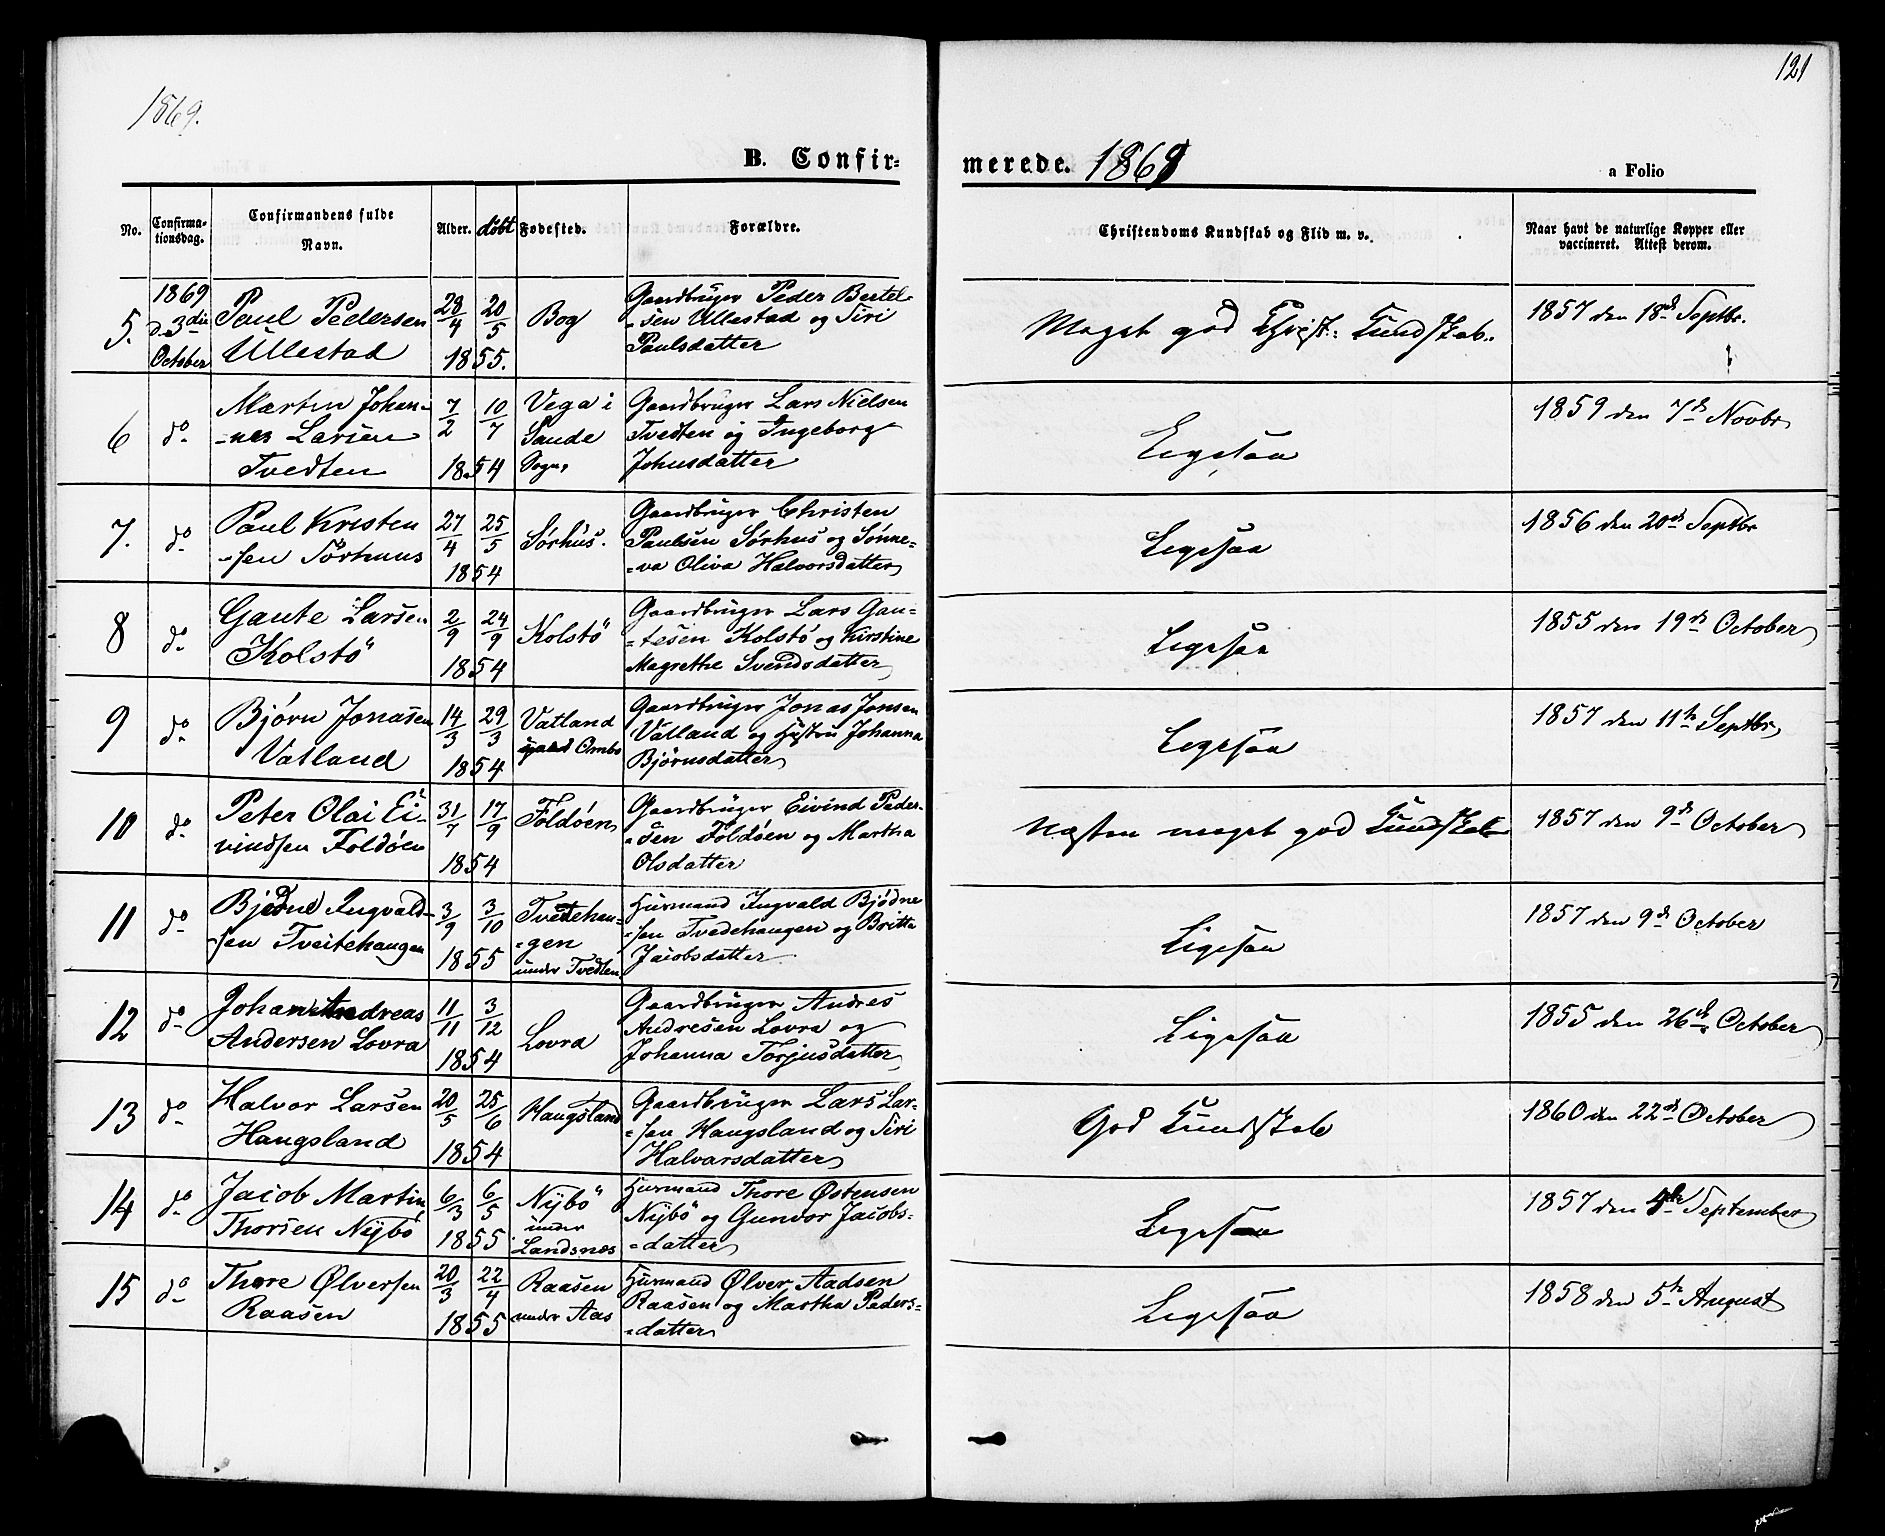 121
1869.
B. Confir-
merede. 1869
a Folio
No.
Confirma-
tionsdag.
Confirmandens fulde
Navn.
Alder.
døbt
Fødested.
Forældre.
Christendoms Kundskab og Flid m. v.
Naar havt de naturlige Kopper eller
vaccineret. Attest derom.
5.
1869
d. 3die
October
Paul Pedersen
Ullestad
28/4 20/5
1855.
Bog
Gaardbruger Peder Bertel-
-sen Ullestad og Siri
Paulsdatter
Meget god Christ: Kundskab.
1857 den 18d Septbr.
6
do
Martin Johan-
-nes Larsen
Tvedten
7/2 10/7
1854
Vega i
Sande
Sogn
Gaardbruger Lars Nielsen
Tvedten og Ingeborg
Johnsdatter
Ligesaa
1859 den 7d Novbr
7.
do
Paul Kristen
-sen Sørhuus
27/4 25/5
1854
Sørhus.
Gaardbruger Christen
Paulsen Sørhus og Sønne-
-va Oliva Halvorsdatter
Ligesaa
1856 den 20de Septbr
8
do
Gaute Larsen
Kolstö
2/9 24/9
1854
Kolstö
Gaardbruger Lars Gau-
-tesen Kolstö og Kirstine
Magrethe Svendsdatter
Ligesaa
1855 den 19de October
9
do
Bjørn Jonasen
Vatland
14/3 29/3
1854
Vatland
Ombo
Gaardbruger Jonas Jonsen
Vatland og Hustru Johanna
Bjørnsdatter
Ligesaa
1857 den 11te Septbr
10
do
Peter Olai Ei-
vindsen Foldøen
31/7 17/9
1854
Foldøen
Gaardbruger Eivind Peder-
-sen Foldøen og Martha
Olsdatter
Næsten meget god Kundskab
1857 den 9d October
11
do
Bjødne Ingvald-
-sen Tveitehaugen
3/9 3/10
1855
Tvedtehau-
-gen
under Tvedten
Husmand Ingvald Bjødne
-sen Tvedehaugen og Britta
Jacobsdatter
Ligesaa
1857 den 9d October
12
do
Johan Andreas
Andersen Lovra
11/11 3/12
1854
Lovra
Gaardbruger Andres
Andresen Lovra og
Johanna Torjusdatter
Ligesaa
1855 den 26de October
13
do
Halvor Larsen
Haugsland
20/5 25/6
1854
Haugsland
Gaardbruger Lars Lar-
-sen Haugsland og Siri
Halvarsdatter
God Kundskab
1860 den 22de October
14
do
Jacob Martin
Thorsen Nybö
6/3 6/5
1855
Nybö
under
Landsnes
Husmand Thore Østensen
Nybö og Gunvor Jacobs-
-datter
Ligesaa
1857 den 4de September
15
do
Thore Ølversen
Raasen
20/3 22/4
1855
Raasen
under Aas
Husmand Ølver Aadsen
Raasen og Martha Peders-
-datter
Ligesaa
1858 den 5te August